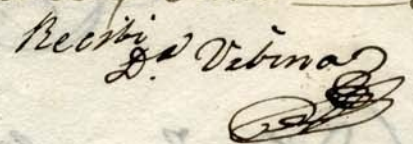 Recibi
D.ª Vebina